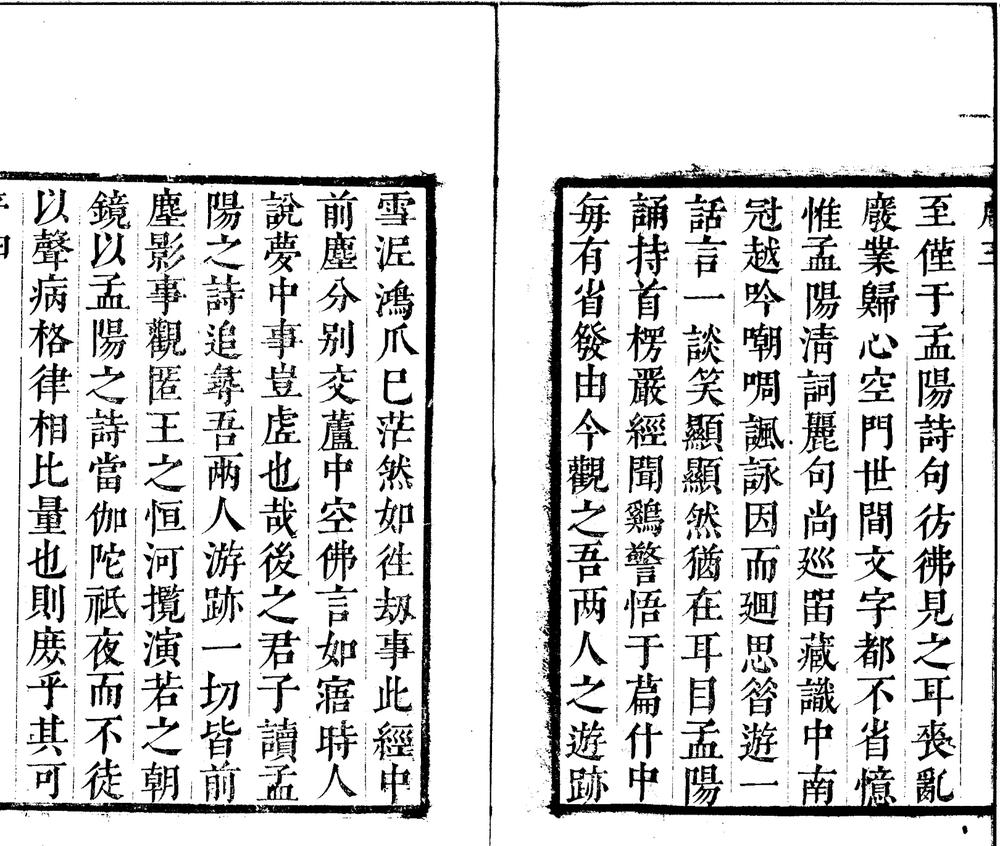 至僅于孟陽詩句彷彿見之耳喪亂
廢業歸心空門世間文字都不省憶
惟孟陽清詞麗句尚廵畱藏識中南
冠越吟嘲啁諷詠因而廻思昝遊一
話言一談笑顯顯然猶在耳目孟陽
誦持首楞嚴經聞鷄警悟于篇什中
每有省發由今觀之吾兩人之遊跡
雪泥鴻爪巳茫然如徃劫事此經中
前塵分别交蘆中空佛言如寤時人
說夢中事豈虗也哉後之君子讀孟
陽之詩追尋吾兩人游跡一切皆前
塵影事觀匿王之恒河攬演若之朝
鏡以孟陽之詩當伽陀祇夜而不徒
以聲病格律相比量也則庻乎其可